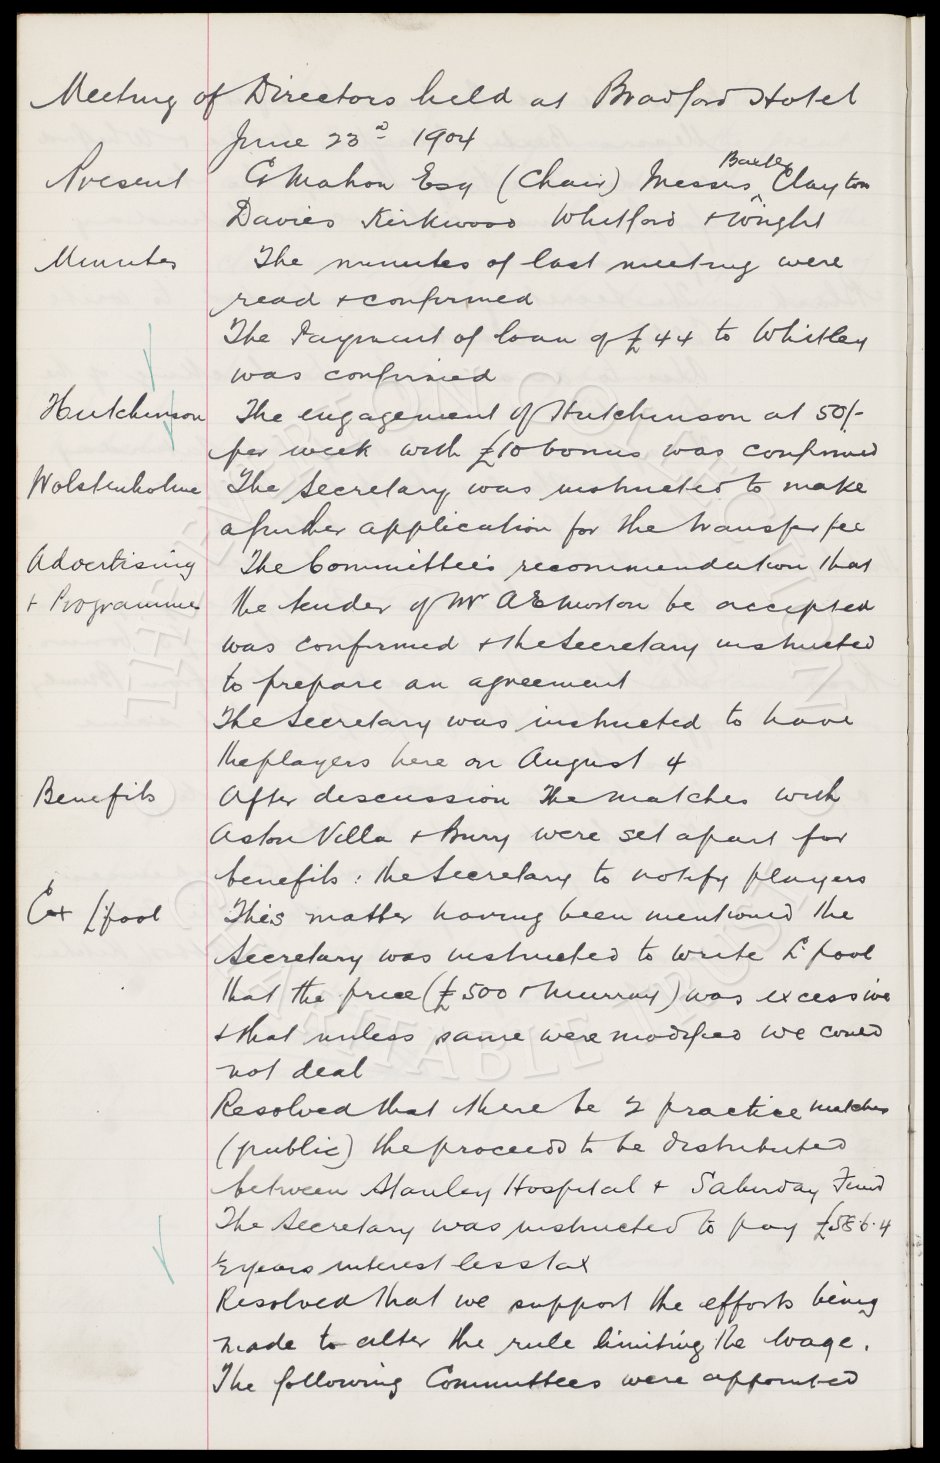 Meeting of Directors held at Bradford Hotel
June 23rd 1904
Present G Mahon Esq (Chair) Messrs Baxter Clayton
Davies Kirkwood Whitford & Wright
Minutes The minutes of last meeting were
read & confirmed
The Payment of loan of £44 to Whitley
was confirmed
Hutchinson The engagement of Hutchinson at 50/-
per week with £10 bonus was confirmed
Wolstenholme The Secretary was instructed to make
a further application for the transfer fee
Advertising The Committee's recommendation that
& Programme the tender of Mr A E Murton be accepted
was confirmed & the Secretary instructed
to prepare an agreement
The Secretary was instructed to have
the players here on August 4
Benefits After discussion the matches with
Aston Villa & Bury were set apart for
benefits: the Secretary to notify players
Cox L'pool This matter having been mentioned the
Secretary was instructed to write L'pool
that the price (£500 & Murray) was excessive
& that unless same were modified we could
not deal
Resolved that there be 2 practice matches
(public) the proceeds to be distributed
between Stanley Hospital & Saturday Fund
The Secretary was instructed to pay £58.6.4
½ years interest less tax
Resolved that we support the efforts being
made to alter the rule limiting the Wage.
The following Committees were appointed
THE EVERTON COLLECTION
CHARITABLE TRUST